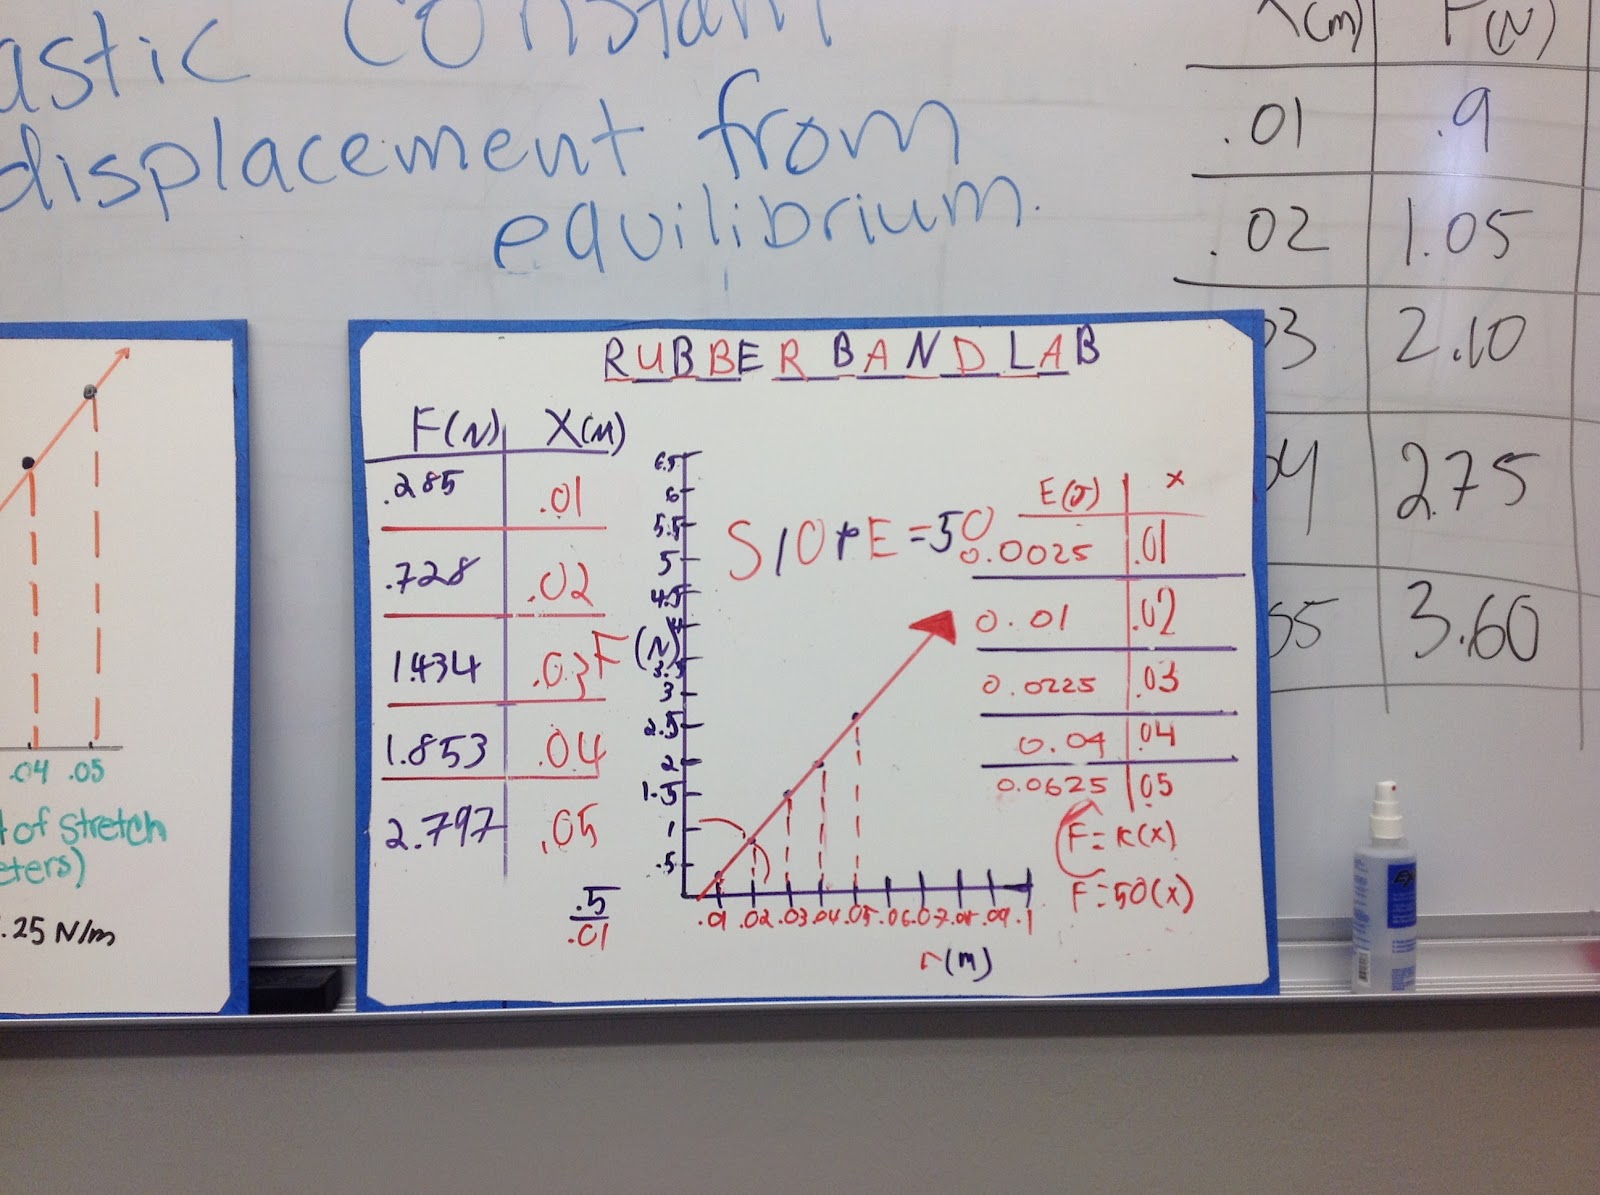 astic constant
displacement from
equilibrium.
X(m) F(N)
.01 .9
.02 1.05
03 2.10
04 2.75
05 3.60
.04 .05
of stretch
eters)
.25 N/m
RUBBER BAND LAB
F(N) X(M)
.285 .01
.728 .02
1.434 .03
1.853 .04
2.797 .05
.5
.01
6.5
6
5.5
5
4.5
4
3.5
3
2.5
2
1.5
1
.5
F(N)
SlOpE=50
.01 .02 .03 .04 .05 .06 .07 .08 .09 .1
r(m)
E(J) x
0.0025 .01
0.01 .02
0.0225 .03
0.04 .04
0.0625 .05
F=K(x)
F=50(x)
EX